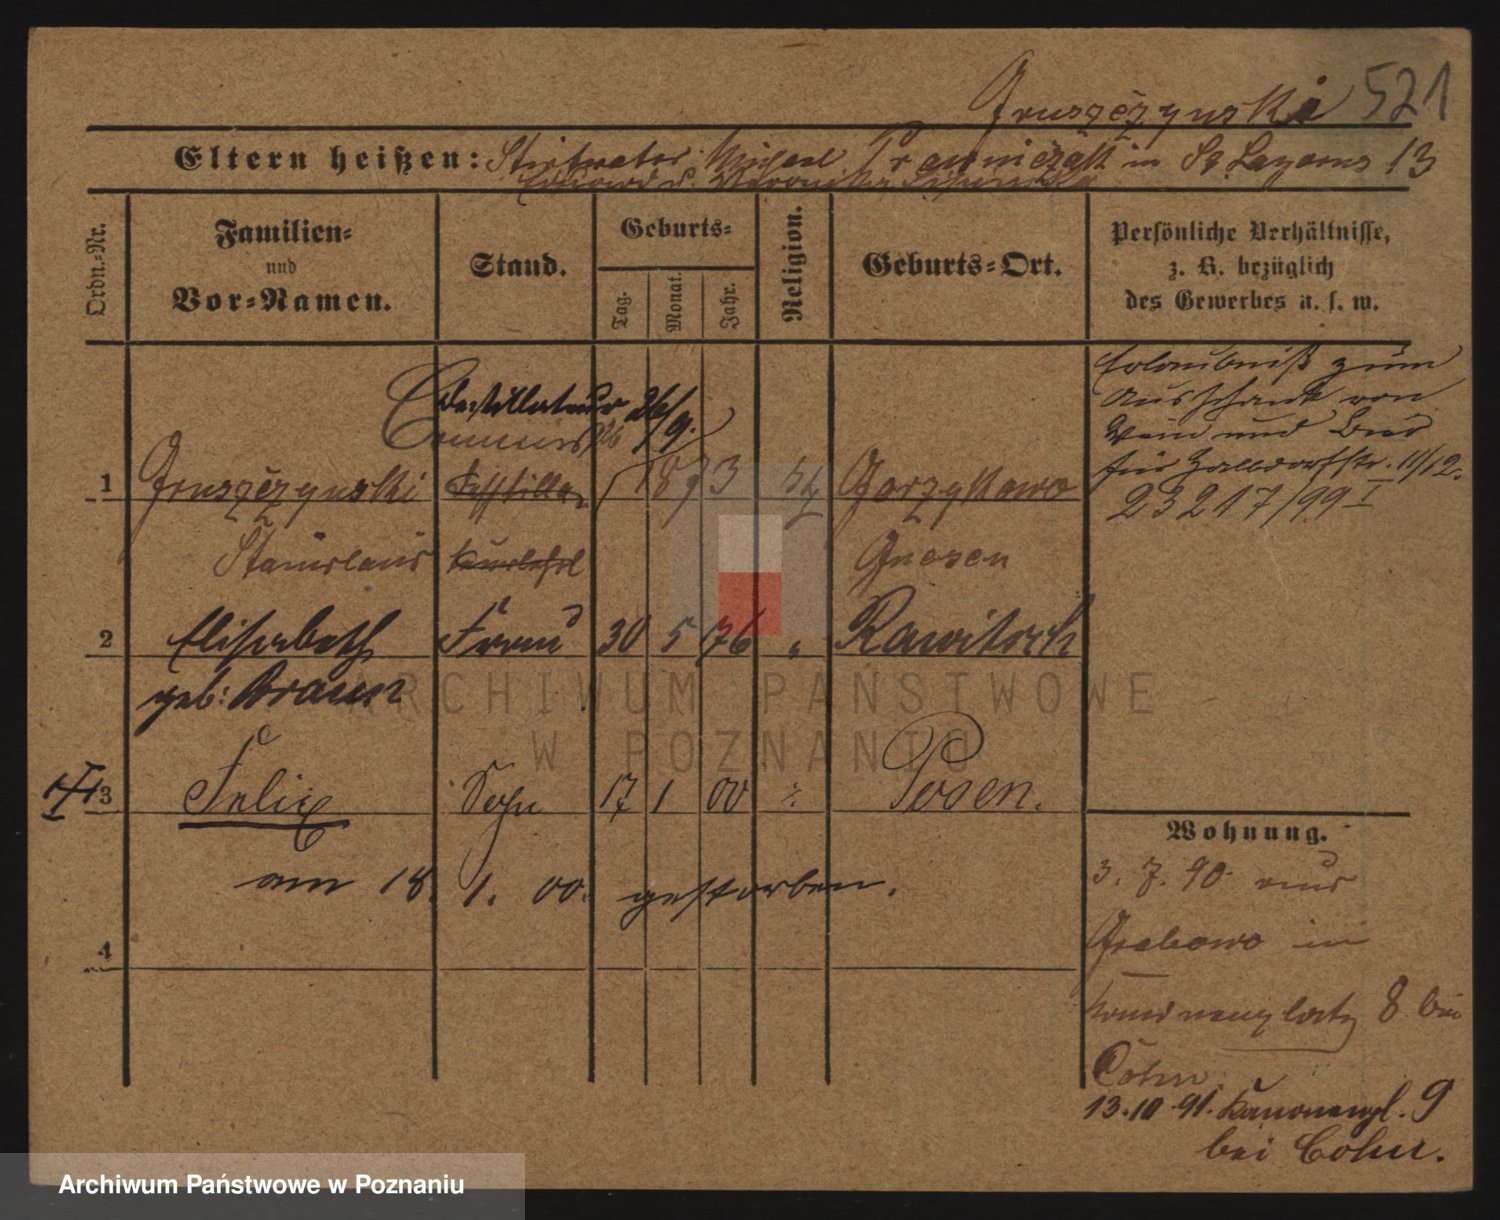 Gruszczynski 521
Eltern heißen: Stiefvater: Michael Prawniczak in St. Lazarus 13
Eduard u. Veronika
Ordn.-Nr.
Familien-
und
Vor-Namen.
Stand.
Geburts-
Tag.
Monat.
Jahr.
Religion.
Geburts-Ort.
Persönliche Verhältnisse,
z. B. bezüglich
des Gewerbes u. s. w.
Erlaubniß zum
Ausschank von
Wein und Bier
für Halbdorfstr. 11/12.
23217/99 I
Destillateur 26/9.
Commis
1 Gruszczynski 1873 Gorzykowo
Stanislaus Gnesen
2 Elisabeth Frau 30 5 76 " Rawitsch
geb: Braun
3 Felix Sohn 17 1 00 Posen.
am 18. 1. 00. gestorben.
4
Wohnung.
3. 7. 90 aus
Grabowo in
Kanonenplatz 8 bei
Cohn
13.10.91. Kanonenpl. 9
bei Cohn.
ARCHIWUM PAŃSTWOWE
W POZNANIU
Archiwum Państwowe w Poznaniu